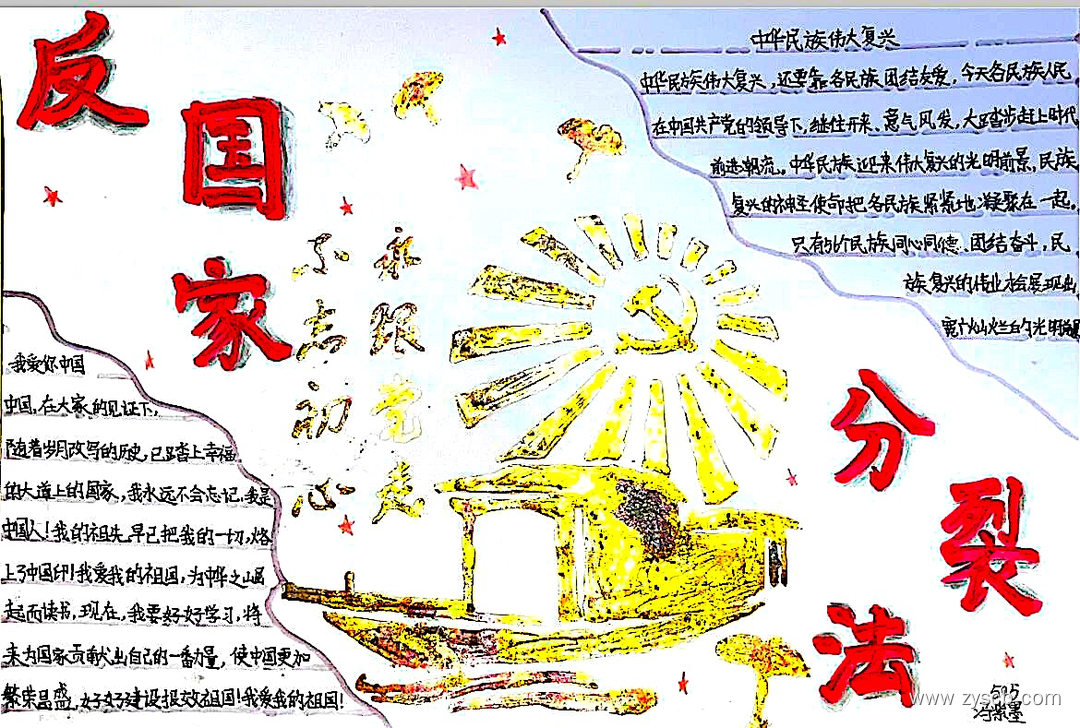 反国家
分裂法
中华民族伟大复兴
中华民族伟大复兴,还要靠各民族团结友爱,今天各民族人民
在中国共产党的领导下,继往开来、意气风发,大踏步走上时代
前进潮流。中华民族迎来伟大复兴的光明前景,民族
复兴的神圣使命把各民族紧紧地凝聚在一起。
只有56个民族同心同德、团结奋斗,民
族复兴的伟业才会展现出
宽广灿烂的光明前景
不忘初心
永跟党走
我爱你中国
中国,在大家的见证下,
随着岁月改写的历史,已踏上幸福
的大道上的国家,我永远不会忘记,我是
中国人!我的祖先早已把我的一切,烙
上了中国印!我爱我的祖国,为中华之崛
起而读书,现在,我要好好学习,将
来为国家贡献出自己的一番力量,使中国更加
繁荣昌盛,好好建设报效祖国!我爱我的祖国!